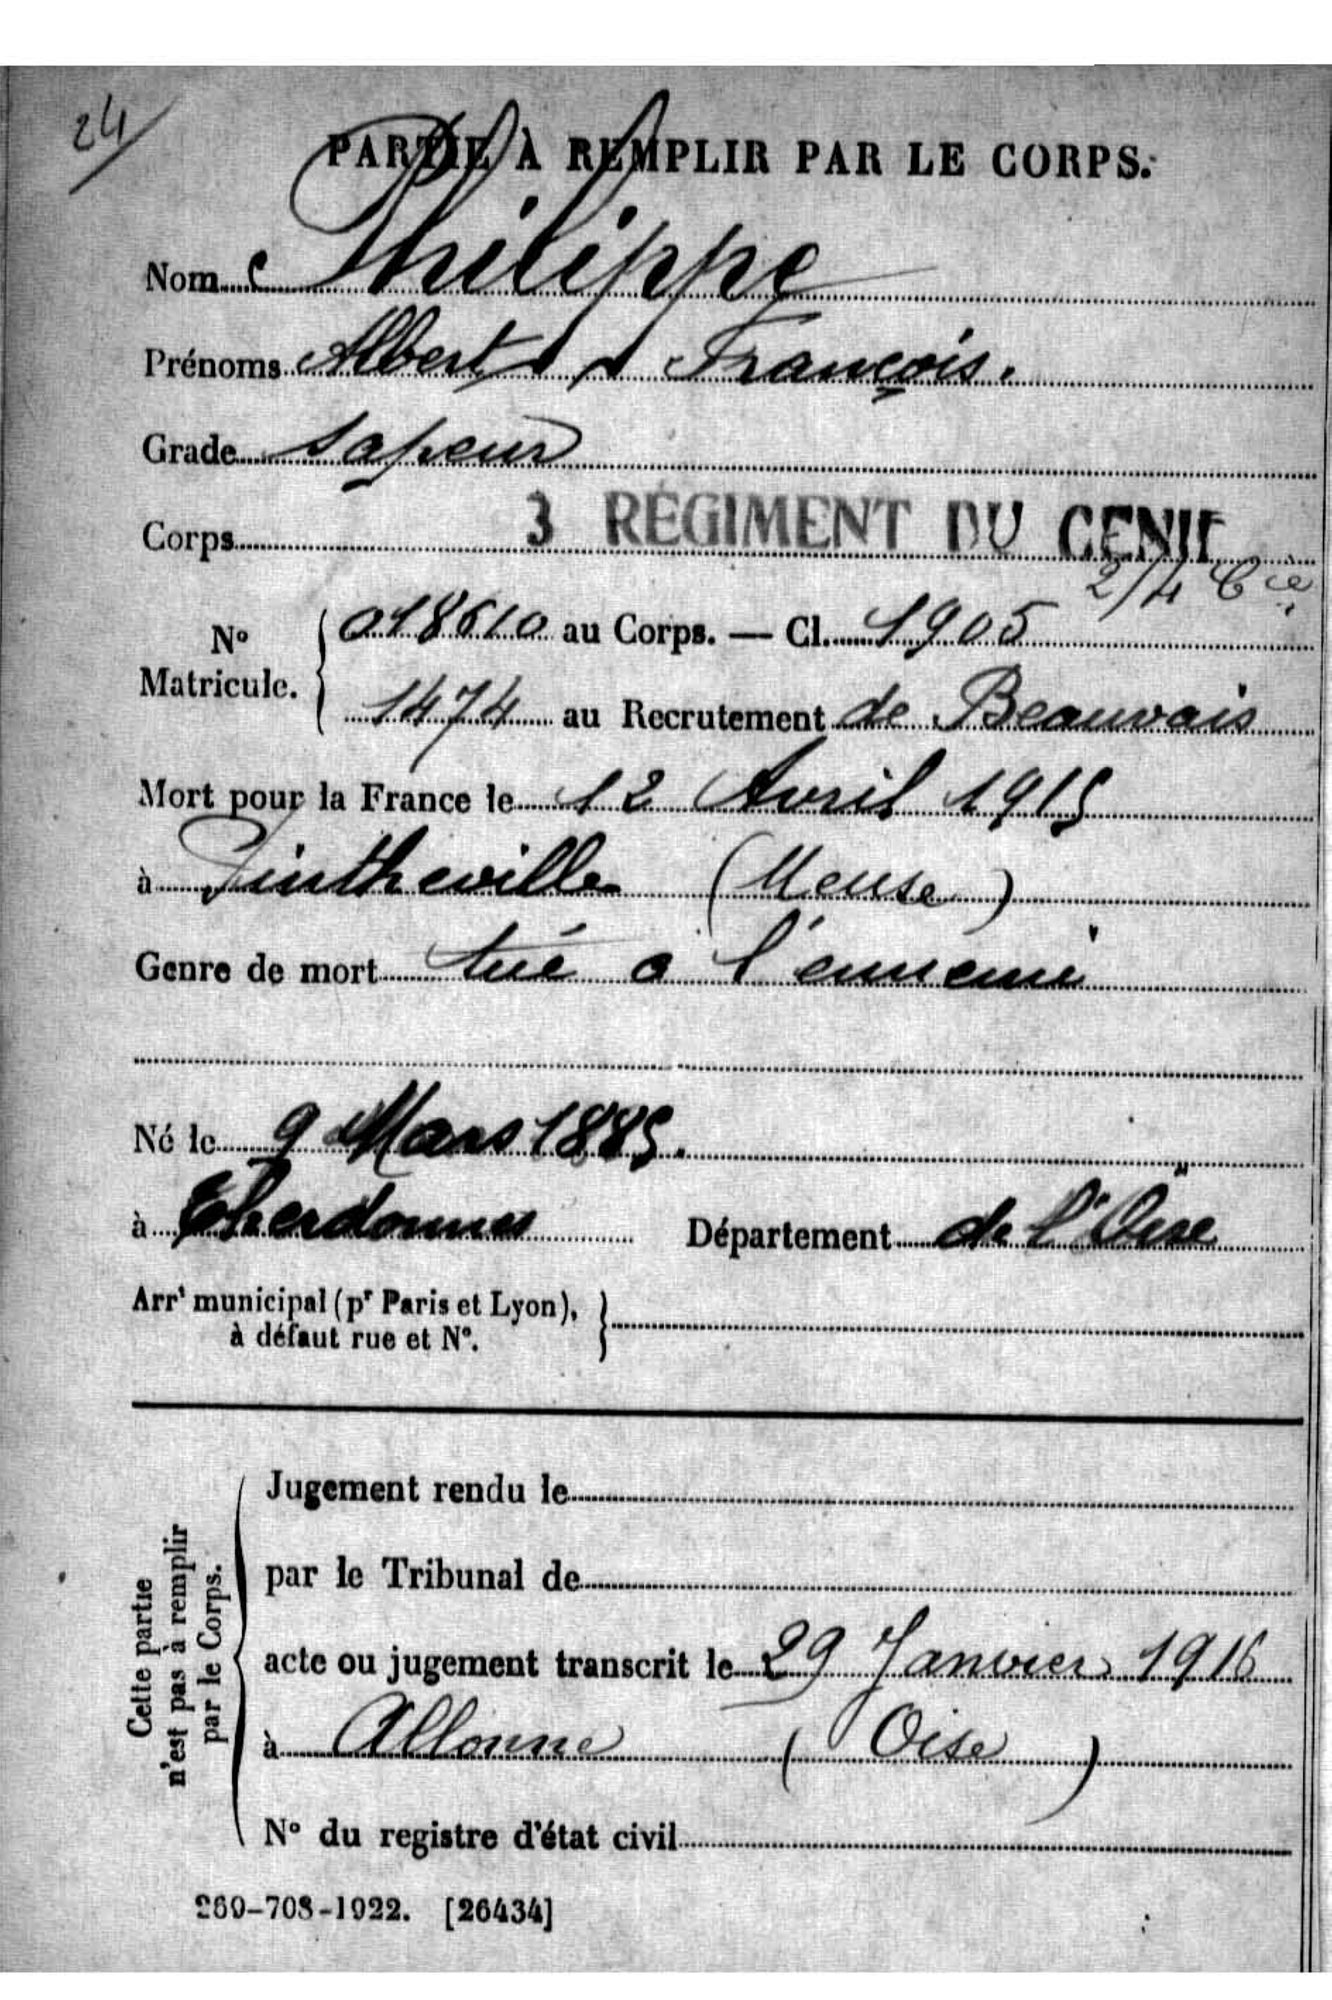 24
PARTIE À REMPLIR PAR LE CORPS.
Nom Philippe
Prénoms Albert François.
Grade Sapeur
Corps 3 RÉGIMENT DU GÉNIE
2/4 Cie
N° Matricule.
018610 au Corps. — Cl. 1905
1474 au Recrutement de Beauvais
Mort pour la France le 12 Avril 1915
à Pintheville (Meuse)
Genre de mort tué a l'ennemi
Né le 9 Mars 1885.
à Therdonne Département de l'Oise
Arrt municipal (pr Paris et Lyon),
à défaut rue et N°.
Cette partie
n'est pas à remplir
par le Corps.
Jugement rendu le
par le Tribunal de
acte ou jugement transcrit le 29 Janvier 1916
à Allonne (Oise)
N° du registre d'état civil
269-708-1922. [26434]